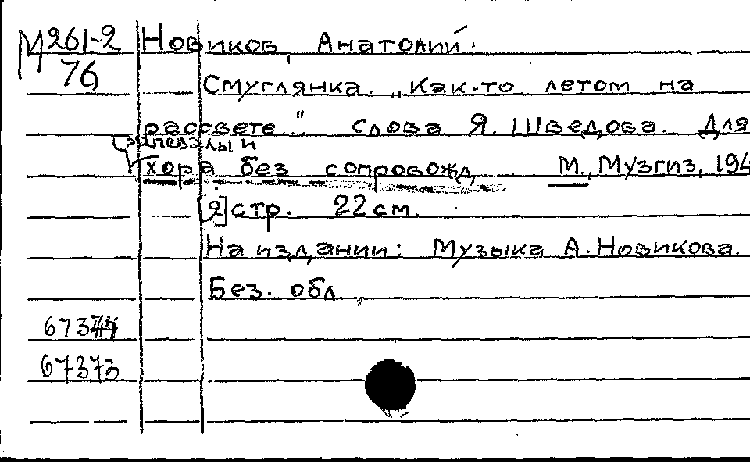 М 261-2
76
Новиков, Анатолий.
Смуглянка. „Как-то летом на
рассвете." слова Я. Шведова. Для
запевалы и
хора без сопровожд. М., Музгиз, 194
[2] стр. 22 см.
На издании: Музыка А. Новикова.
Без. обл.
67373